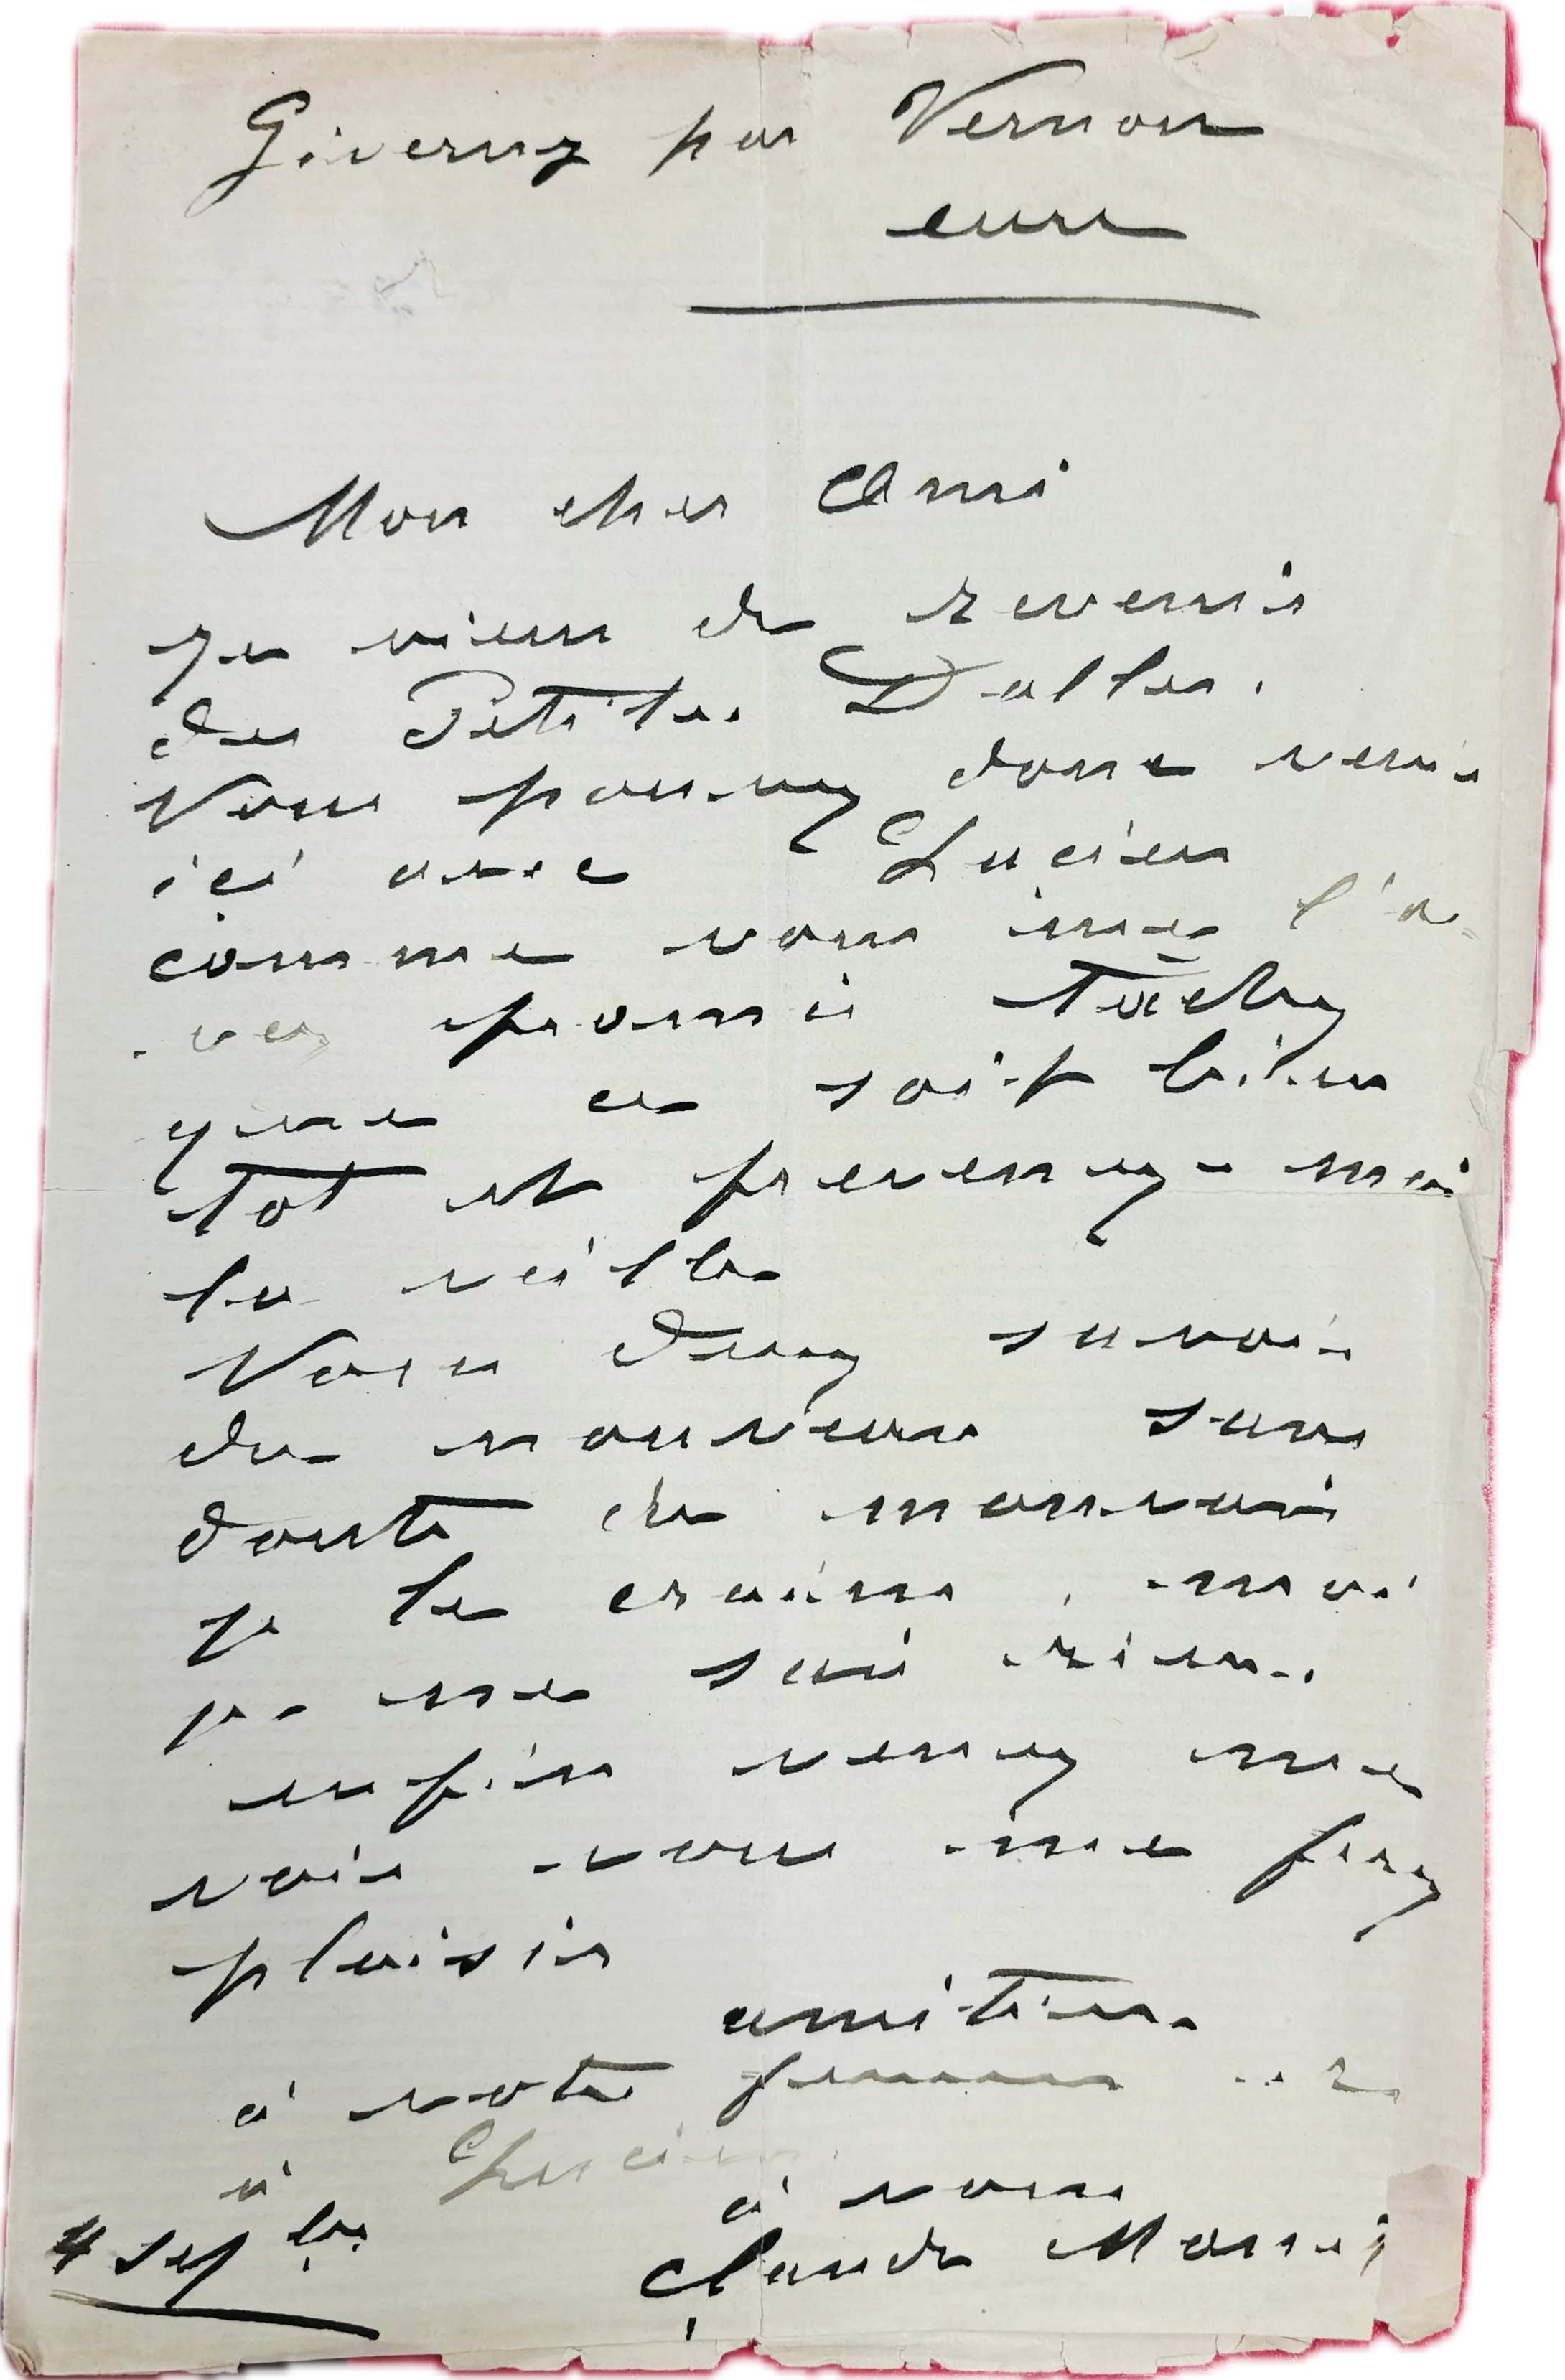 Giverny par Vernon
eure
Mon cher Ami
Je viens de revenir
des Petites Dalles.
Vous pouvez donc venir
ici avec Lucien
comme vous me l'a-
vez promis tachez
que ce soit bien
tot et prevenez-moi
la veille
Vous devez savoir
du nouveau sans
doute du mauvais
je le crains, moi
je ne sais rien.
enfin venez me
voir vous me ferez
plaisir
amitiés
à votre femme et
à Lucien
à vous
4 sepbre Claude Monet